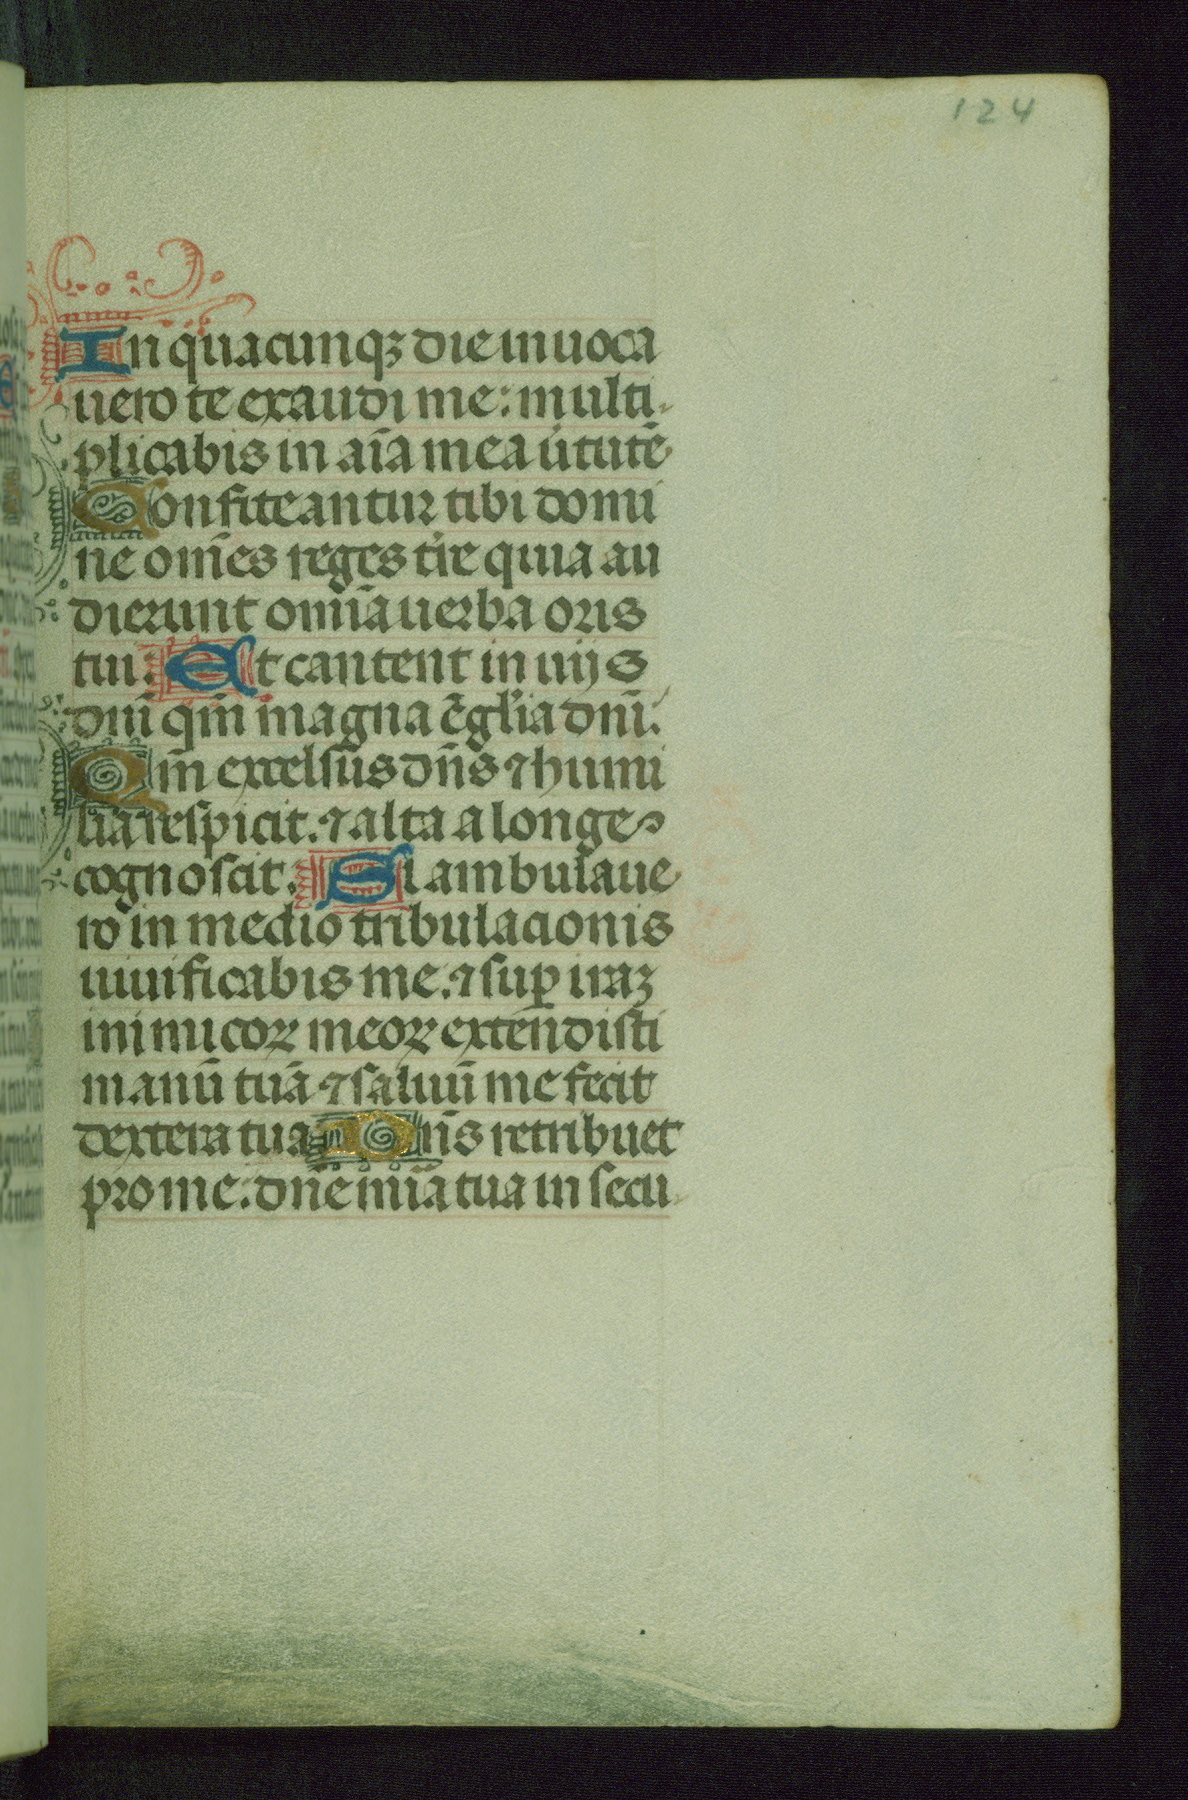 124
In quacunqꝫ die inuoca
uero te exaudi me: multi
plicabis in aīa mea ŭtutē
Confiteantur tibi domi
ne om̄es reges tr̄e quia au
dierunt omīa uerba oris
tui: Et cantent in uijs
dnī qm̄ magna ē glīa dnī.
Qm̄ excelsus dn̄s ⁊ humi
lia respicit. ⁊ alta a longe
cognoscit. Si ambulaue
ro in medio tribulacionis
uiuificabis me. ⁊ suꝑ iraꝫ
inimicoꝝ meoꝝ extendisti
manū tuā ⁊ saluū me fecit
dextera tua Dn̄s retribuet
pro me: dn̄e mīa tua in secu